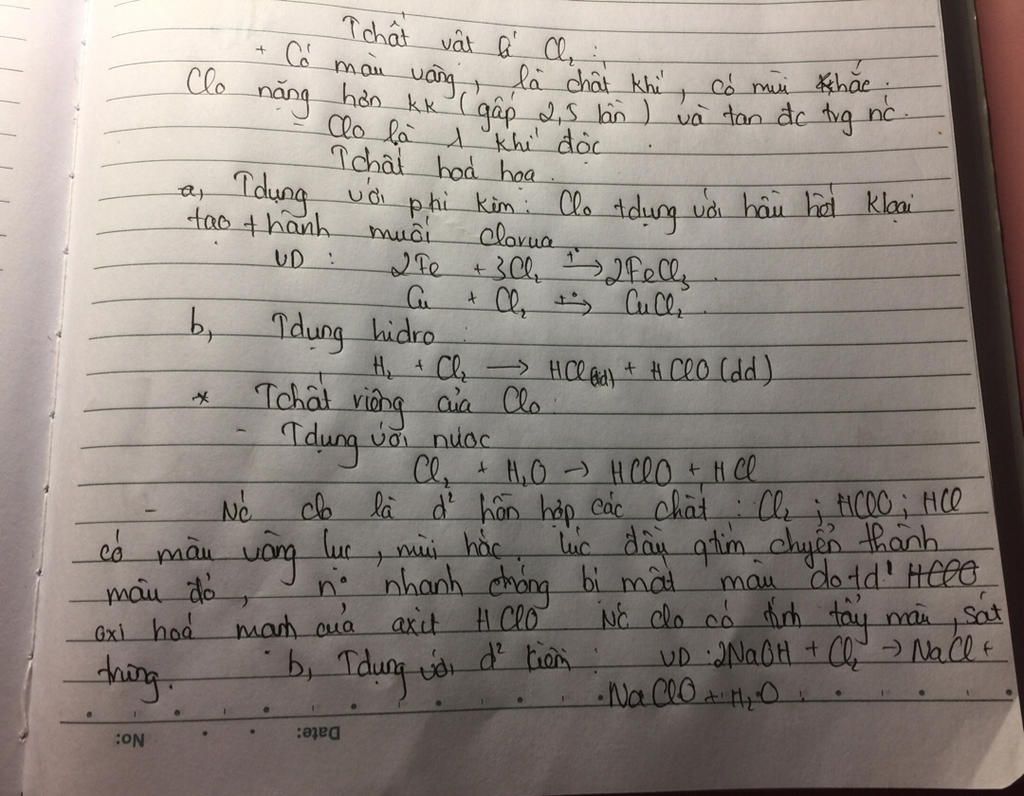 Tchất vật lí Cl₂ :
+ Có màu vàng, là chất khí, có mùi khắc.
Clo nặng hơn kk (gấp 2,5 lần) và tan đc tvg nc.
- Clo là 1 khí độc.
Tchất hoá hoạ.
a, Tdụng với phi kim: Clo tdụng với hầu hết kloại
tạo thành muối clorua.
VD : 2Fe + 3Cl₂ →(t°) 2FeCl₃.
Cu + Cl₂ →(t°) CuCl₂.
b, Tdụng hidro :
H₂ + Cl₂ → HCl(dd) + HClO (dd)
* Tchất riêng của Clo.
- Tdụng với nước
Cl₂ + H₂O → HClO + HCl
- Nc clo là d² hỗn hợp các chất : Cl₂ ; HClO ; HCl
có màu vàng lục, mùi hắc. lúc đầu qtím chuyển thành
màu đỏ, n° nhanh chóng bị mất màu do td' HClO
oxi hoá mạnh của axit HClO Nc clo có tính tẩy màu, sát
trùng. b, Tdụng với d² kiềm : VD : 2NaOH + Cl₂ → NaCl +
NaClO + H₂O.
No:
Date: